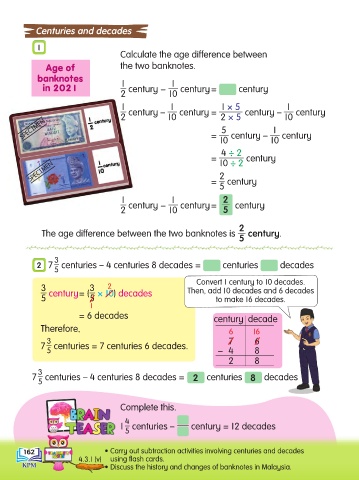 Centuries and decades
1
Calculate the age difference between
the two banknotes.
Age of
banknotes
in 2021
1/2 century – 1/10 century = century
1/2 century – 1/10 century = 1 × 5/2 × 5 century – 1/10 century
= 5/10 century – 1/10 century
= 4 ÷ 2/10 ÷ 2 century
= 2/5 century
1/2 century – 1/10 century = 2/5 century
SPECIMEN
1/2 century
SPECIMEN
1/10 century
The age difference between the two banknotes is 2/5 century.
2 7 3/5 centuries – 4 centuries 8 decades = centuries decades
3/5 century = (3/5 × 10) decades
2
1
= 6 decades
Therefore,
7 3/5 centuries = 7 centuries 6 decades.
Convert 1 century to 10 decades.
Then, add 10 decades and 6 decades
to make 16 decades.
century decade
6 16
7 6
– 4 8
2 8
7 3/5 centuries – 4 centuries 8 decades = 2 centuries 8 decades
BRAIN
TEASER
Complete this.
1 4/5 centuries – century = 12 decades
162
KPM
4.3.1 (v)
• Carry out subtraction activities involving centuries and decades
using flash cards.
• Discuss the history and changes of banknotes in Malaysia.